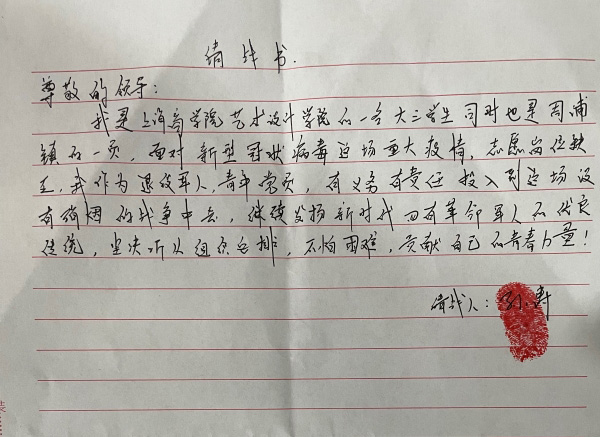 请战书
尊敬的领导:
我是上海商学院艺术设计学院的一名大三学生同时也是周浦
镇的一员,面对新型冠状病毒这场重大疫情,志愿岗位缺
乏,我作为退役军人,青年党员,有义务有责任投入到这场没
有硝烟的战争中去,继续发扬新时代四有革命军人的优良
传统,坚决听从组织安排,不怕困难,贡献自己的青春力量!
请战人: